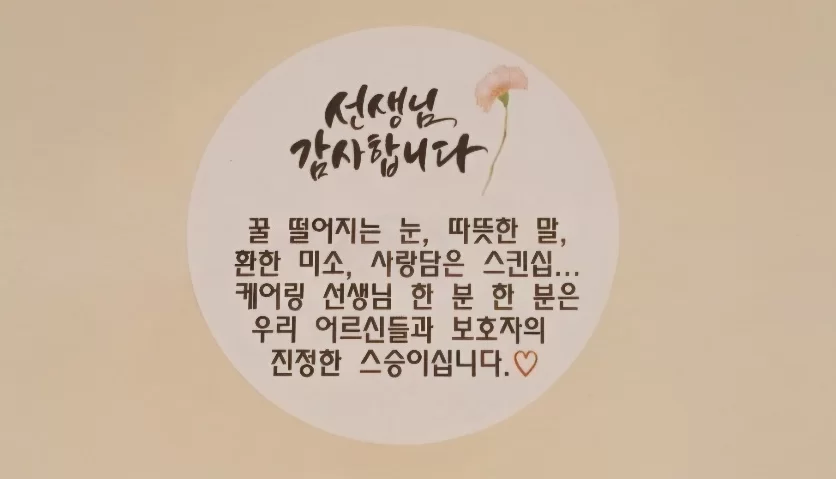 선생님
감사합니다
꿀 떨어지는 눈, 따뜻한 말,
환한 미소, 사랑담은 스킨십...
케어링 선생님 한 분 한 분은
우리 어르신들과 보호자의
진정한 스승이십니다.♡